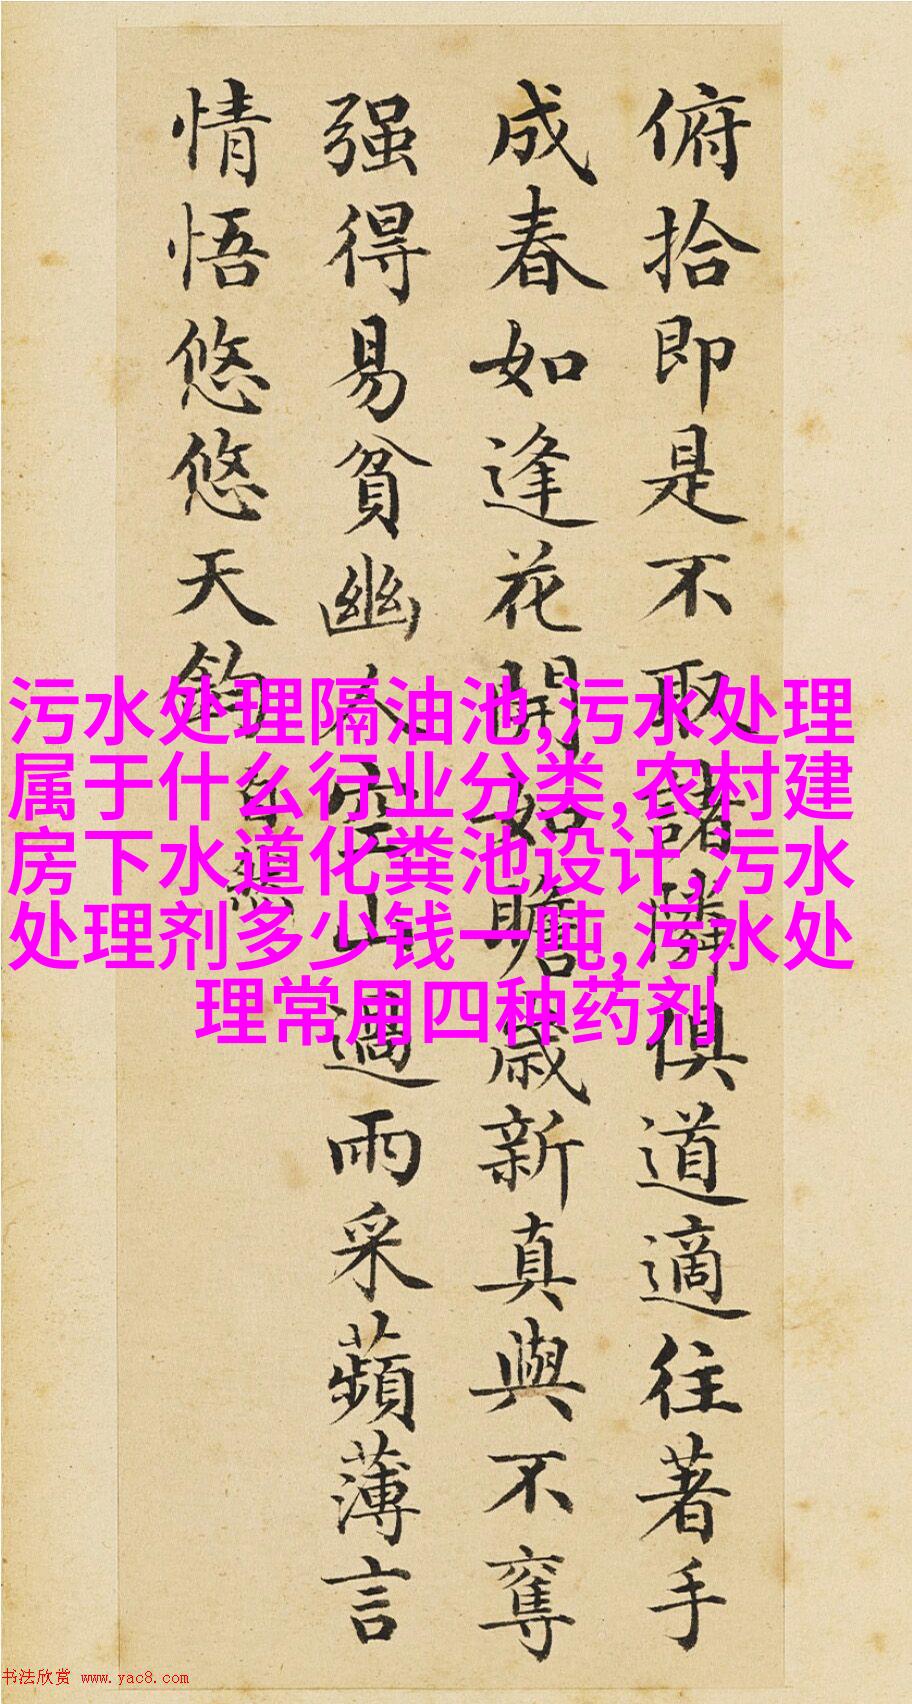 俯拾即是不取諸隣俱道適往著手
成春如逢花開如瞻歲新真與不奪
强得易貧幽人空山過雨采蘋薄言
情悟悠悠天鈞 自然
污水处理隔油池,污水处理
属于什么行业分类,农村建
房下水道化粪池设计,污水
处理剂多少钱一吨,污水处
理常用四种药剂
书法欣赏 www.yac8.com